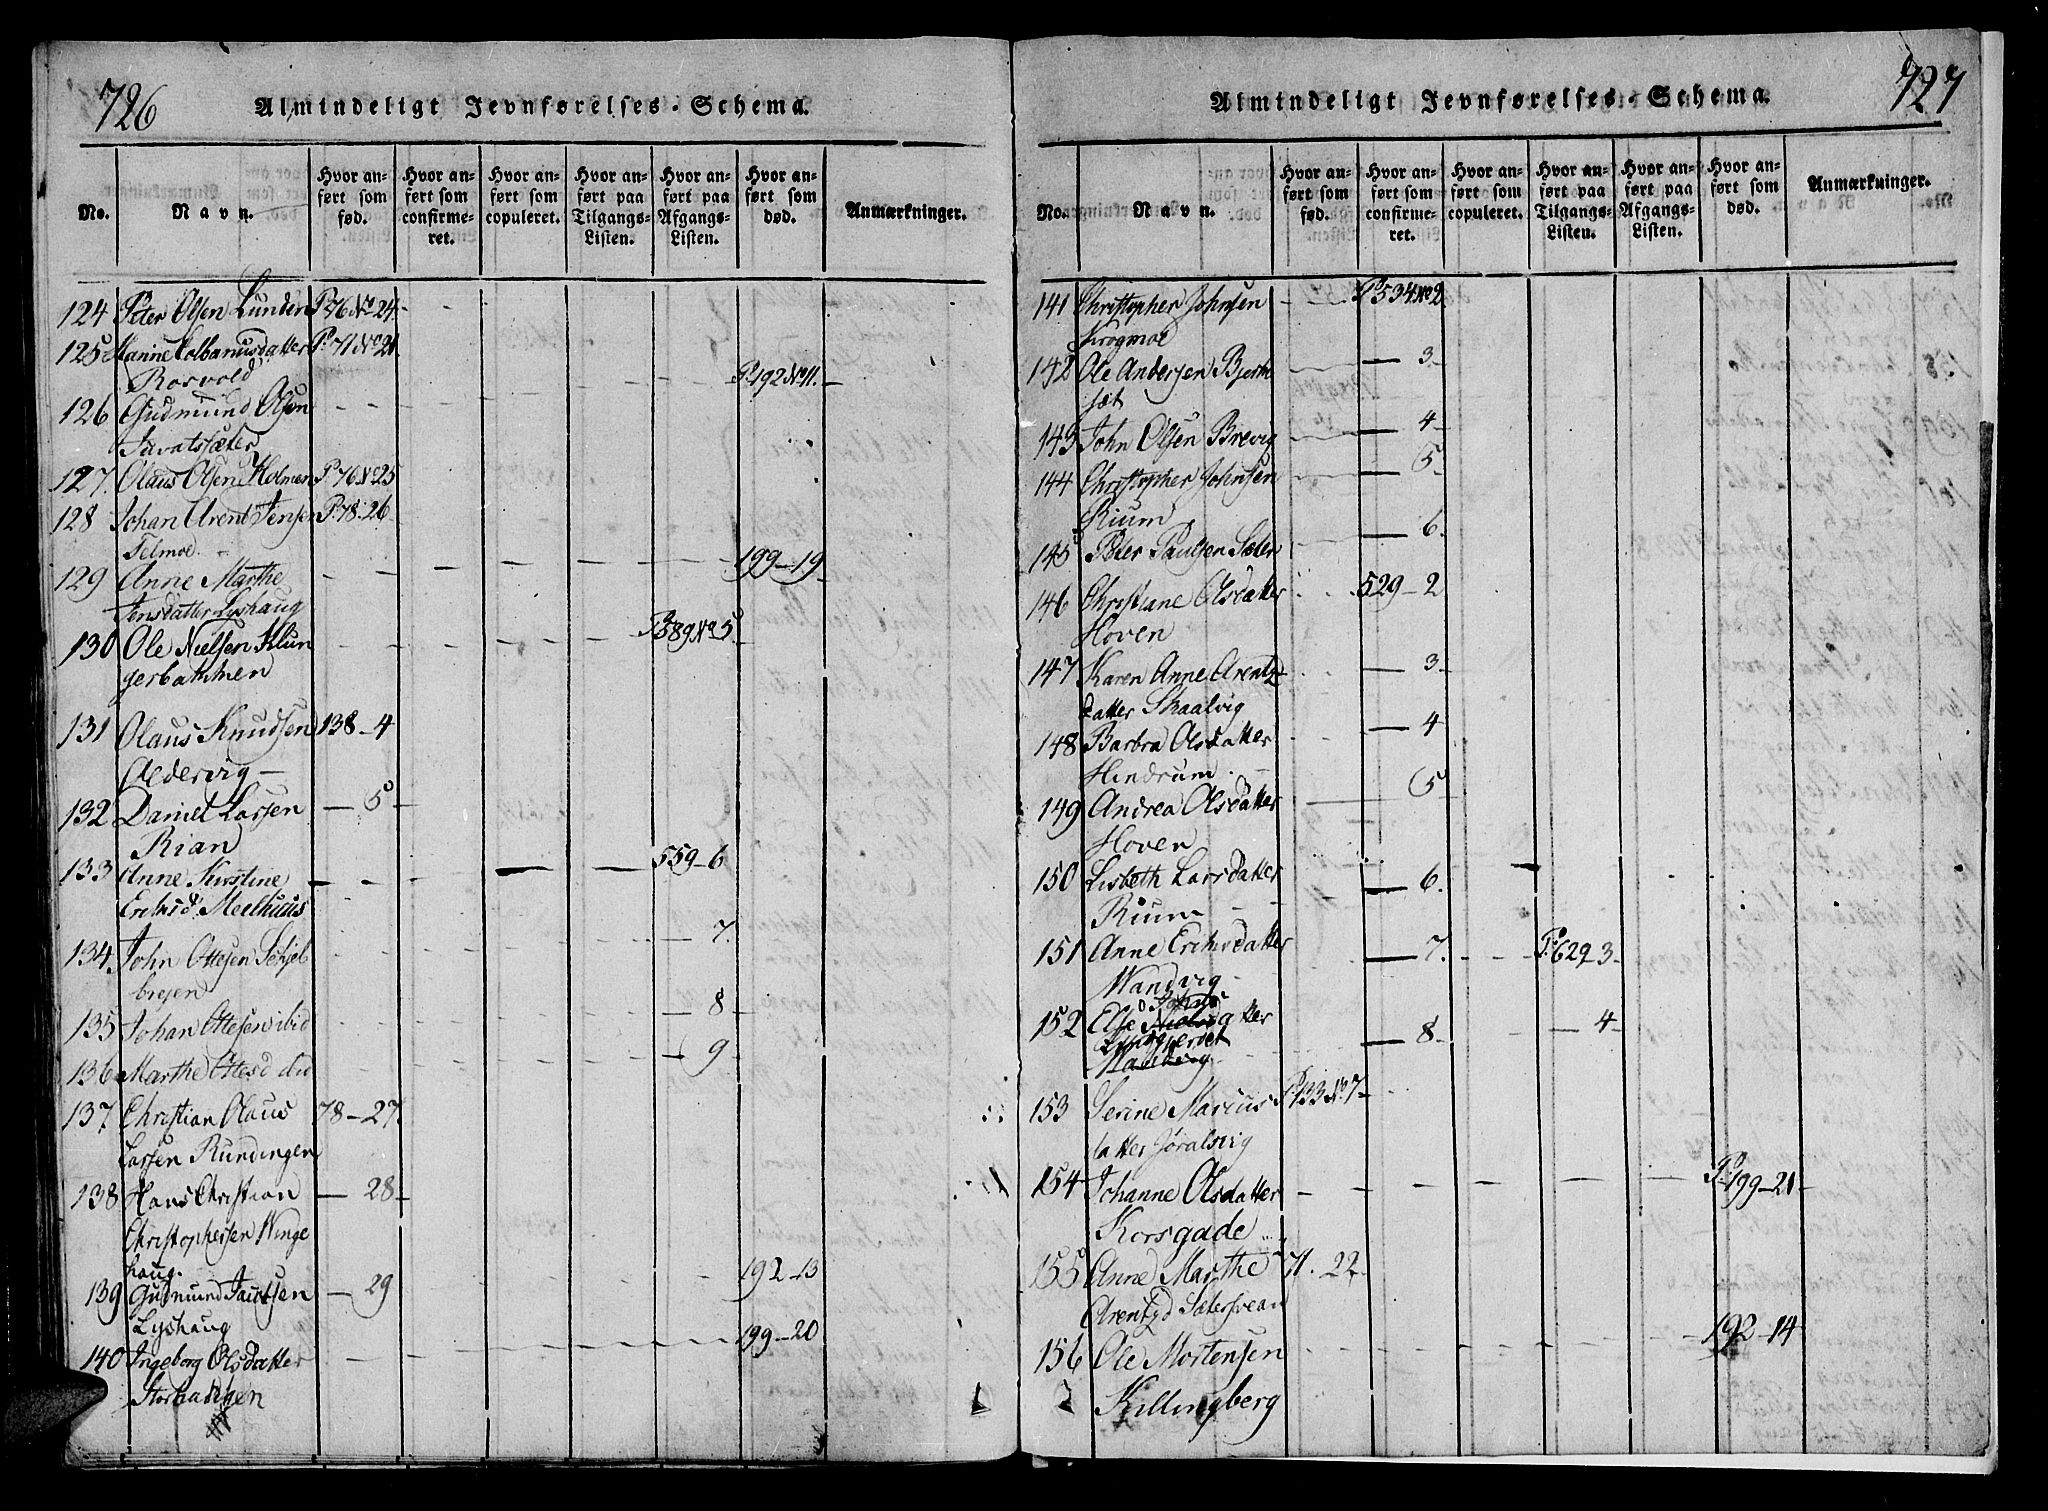 726
Almindeligt Jevnførelses-Schema.
No. Navn. Hvor anført som fød. Hvor anført som confirmeret. Hvor anført som copuleret. Hvor anført paa Tilgangs-Listen. Hvor anført paa Afgangs-Listen. Hvor anført som død. Anmærkninger.
124 Peter Olsen Lunden P. 76 No 24
125 Hanne Colbanusdatter P. 71 No 21
Rosvold
P. 192 No 11.
126 Gudmund Olsen
127. Olaus Olsen Holmen P. 76 No 25
128 Johan Arent Jensen P. 78 - 26
Telmoe
129 Anne Marthe 199 - 19
Jensdatter Lyshaug
130 Ole Nielsen Klun P 589 No 5
gerbakken
131 Olaus Knudsen 138 - 4
Oldervig
132 Daniel Larsen - 5
Rian
133 Anne Kirstine 559 - 6
Erichsd. Meelhuus
134 John Ottesen - 7.
135 Johan Ottesen ibid - 8
136 Marthe Ottesd ibid - 9
137 Christian Olaus 78 - 27
Larsen Rundingen
138 Hans Christian - 28
Christophersen Winge
haug.
192 - 13
139 Gudmund Jacobsen - 29
Lyshaug
199 - 20
140 Ingeborg Olsdatter
Storbakken
727
Almindeligt Jevnførelses-Schema.
No. Navn. Hvor anført som fød. Hvor anført som confirmeret. Hvor anført som copuleret. Hvor anført paa Tilgangs-Listen. Hvor anført paa Afgangs-Listen. Hvor anført som død. Anmærkninger.
141 Christopher Johnsen P. 534 No 2
Krogmoe
142 Ole Andersen Bjerk - 3
sæt
143 John Olsen Brevig - 4
144 Christopher Johnsen - 5
Rium
145 Peder Paulsen Sæter - 6.
146 Christiane Olsdatter 529 - 2
Hoven
147 Karen Anne Arentz - 3
datter Skaalvig
148 Barbra Olsdatter - 4
Hindrum
149 Andrea Olsdatter - 5
Hoven
150 Lisbeth Larsdatter - 6.
Rium
151 Anne Erichsdatter - 7. P. 629 - 3
Wandvig
Johns
152 Else datter - 8 - 4
153 Serine Marcus P. 133 No 7
datter Jøralsvig
154 Johanne Olsdatter P. 199 - 21
Korsgade
155 Anne Marthe 71 - 22
Arentzd Sætersvean
156 Ole Mortensen 192 - 14
Killingberg